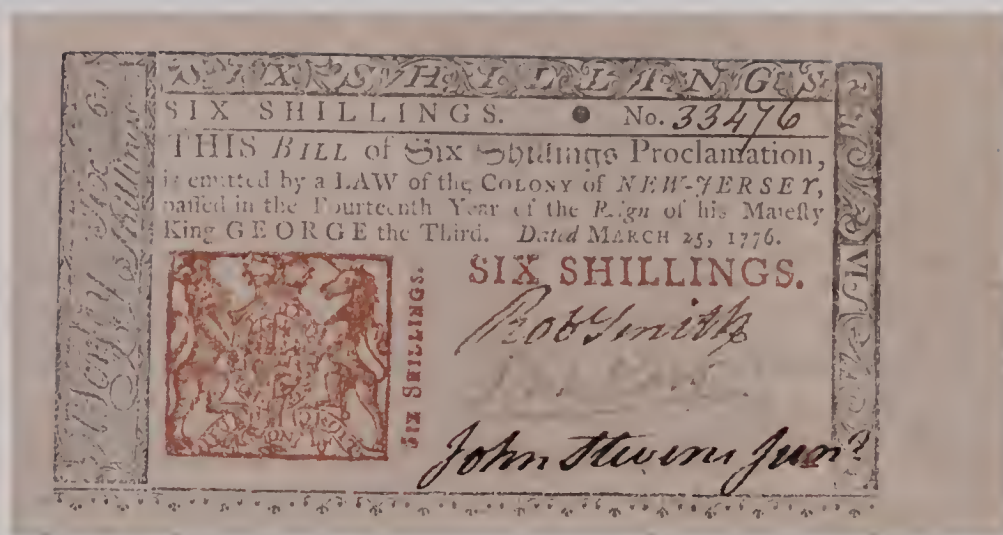 SIX SHILLINGS
SIX SHILLINGS. No. 33476
THIS BILL of Six Shillings Proclamation,
is emitted by a LAW of the COLONY of NEW-JERSEY,
paſſed in the Fourteenth Year of the Reign of his Majeſty
King GEORGE the Third. Dated MARCH 25, 1776.
SIX SHILLINGS.
SIX SHILLINGS.
Robt Smith
John Stevens Junr
Shillings